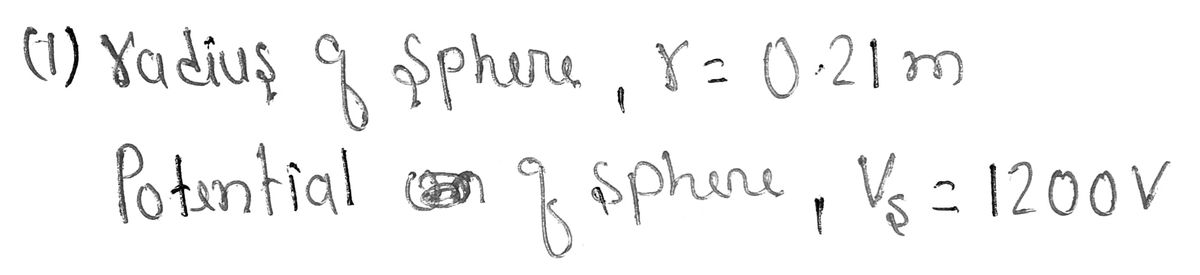 (1) radius of sphere, r = 0.21 m
Potential of sphere, Vs = 1200V